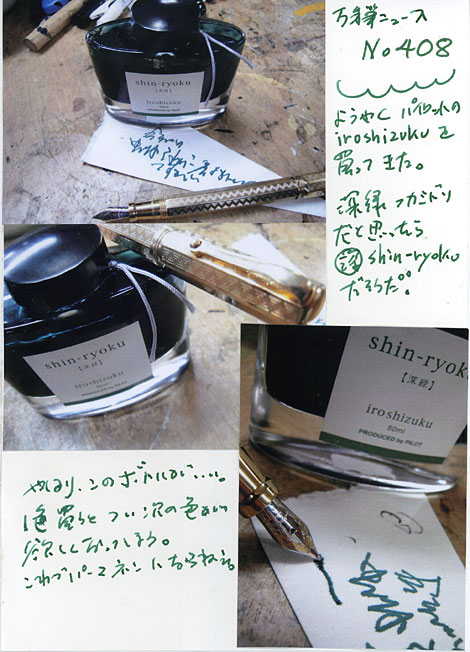 万年筆ニュース
No 408
ようやく パイロットの
iroshizuku を
買ってきた。
深緑 フカミドリ
だと思ったら
shin-ryoku
だそうだ。
shin-ryoku
[深緑]
iroshizuku
50ml
shin-ryoku
[深緑]
iroshizuku
50ml
PRODUCED by PILOT
shin-ryok
[深緑]
iroshizuku
50ml
PRODUCED by PILOT
やはり、このボトルがいい。
買うと つい次の色が
欲しくなってしまう。
これでパーマネント